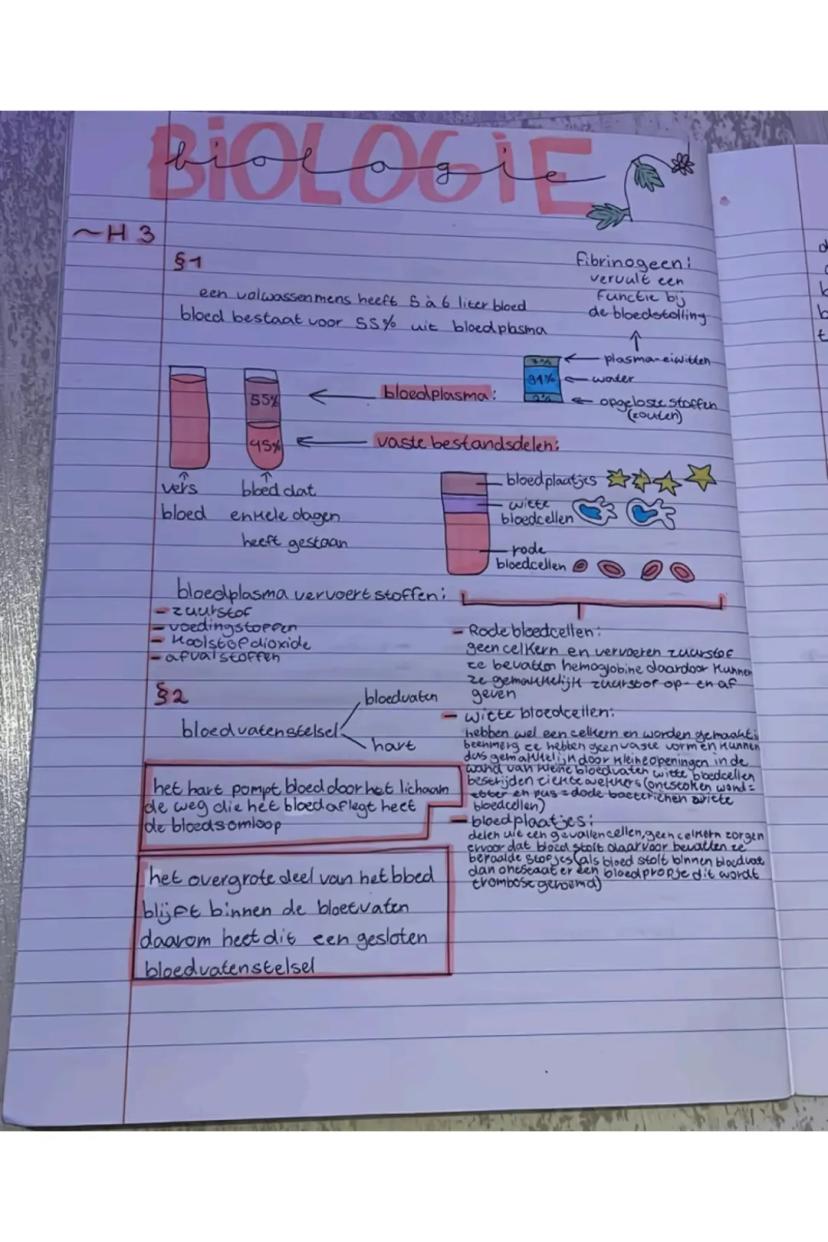 BIOLOGIE
biologie
~H 3
§1
een volwassen mens heeft 5 à 6 liter bloed
bloed bestaat voor 55% uit bloedplasma
fibrinogeen:
vervult een
functie bij
de bloedstolling
plasma-eiwitten
water
opgeloste stoffen
(zouten)
7%
91%
2%
bloedplasma:
vaste bestandsdelen:
55%
45%
vers
bloed
bloed dat
enkele dagen
heeft gestaan
bloedplaatjes
witte
bloedcellen
rode
bloedcellen
bloedplasma vervoert stoffen:
- zuurstof
- voedingstoffen
- koolstofdioxide
- afvalstoffen
§2
bloedvatenstelsel
bloedvaten
hart
het hart pompt bloed door het lichaam
de weg die het bloed aflegt heet
de bloedsomloop
het overgrote deel van het bloed
blijft binnen de bloetvaten
daarom heet dit een gesloten
bloedvatenstelsel
- Rode bloedcellen:
geen celkern en vervoeren zuurstof
ze bevatten hemoglobine daardoor kunnen
ze gemakkelijk zuurstof op- en af
geven
- witte bloedcellen:
hebben wel een celkern en worden gemaakt in
beenmerg ze hebben geen vaste vorm en kunnen
dus gemakkelijk door kleine openingen in de
wand van kleine bloedvaten witte bloedcellen
bestrijden ziekteverwekkers (onstoken wond=
etter en pus = dode bacterieën & witte
bloedcellen)
- bloedplaatjes:
delen uit een gevallen cellen, geen celkern zorgen
ervoor dat bloed stolt daarvoor bevatten ze
bepaalde stofjes (als bloed stolt binnen bloedvat
dan onstaat er een bloedpropje dit wordt
trombose genoemd)